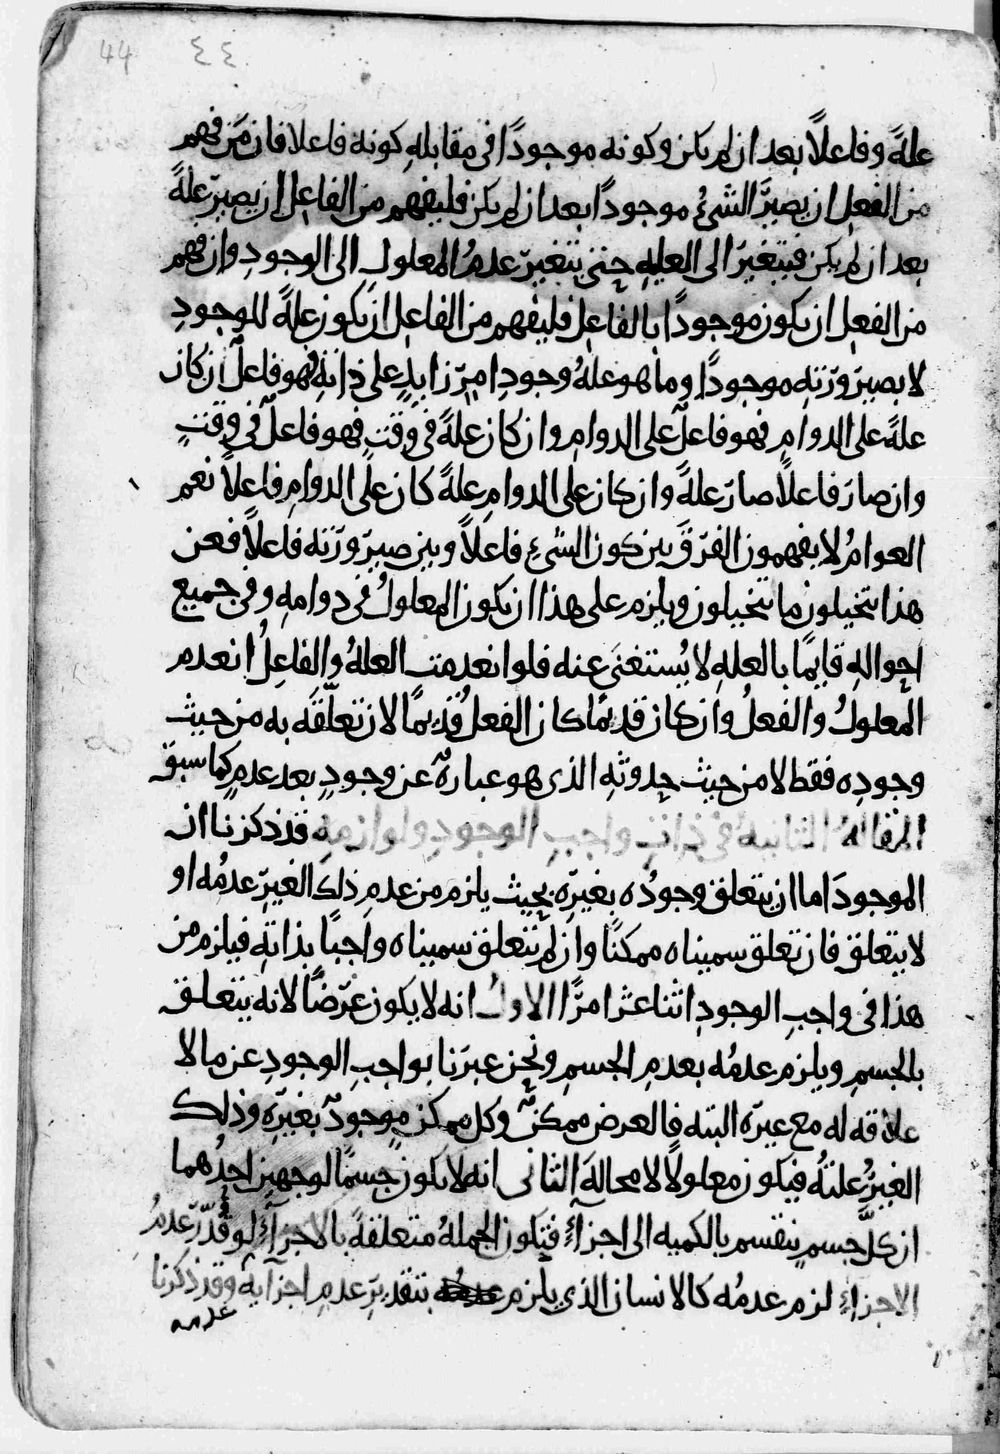 44 ٤٤
علةً وفاعلاً بعد ان لم يكن وكونه موجودًا في مقابله كونه فاعلا فان من فهم
من الفعل ان يصير الشئُ موجودًا بعد ان لم يكن فليفهم من الفاعل ان يصير علةً
بعد ان لم يكن فيتغير الى العليه حتى يتغير عدمُ المعلول الى الوجودِ وان فهم
من الفعل ان يكون موجودًا بالفاعل فليفهم من الفاعل ان يكون علةً للوجودِ
لا بصيرورته موجودًا وما هو علهُ وجودِ امرٍ زايدٍ على ذاته فهو فاعلٌ ان كان
علةً على الدوامِ فهو فاعلٌ على الدوامِ وان كان علةً في وقتٍ فهو فاعلٌ في وقتٍ
وان صار فاعلاً صار علةً وان كان على الدوامِ علةً كان على الدوامِ فاعلاً نعم
العوامُ لا يفهمون الفرقَ بين كون الشئِ فاعلاً وبين صيرورته فاعلاً فعن
هذا يتخيلون ما يتخيلون ويلزم على هذا ان يكون المعلولُ في دوامه وفي جميع
احواله قايمًا بالعلهِ لا يُستغنى عنه فلو انعدمت العلهُ والفاعلُ انعدم
المعلولُ والفعلُ وان كان قديمًا كان الفعلُ قديمًا لان تعلّقَه به من حيث
وجودِه فقط لا من حيث حدوثهِ الذى هو عبارةٌ عن وجودٍ بعد عدمٍ كما سبق
المقالهُ الثانيهُ في ذاتِ واجبِ الوجودِ ولوازمهِ قد ذكرنا ان
الموجودَ اما ان يتعلق وجودُه بغيرِه بحيث يلزم من عدمِ ذلك الغيرِ عدمُه او
لا يتعلق فان تعلق سميناه ممكنًا وان لم يتعلق سميناه واجبًا بذاتهِ فيلزم من
هذا في واجبِ الوجودِ اثنا عشر امرًا الاولُ انه لا يكون عرضًا لانه يتعلق
بالجسمِ ويلزم عدمُه بعدمِ الجسمِ ونحن عبرنا بواجبِ الوجودِ عن ما لا
علاقه له مع غيره البته فالعرض ممكنٌ وكل ممكن موجودٌ بغيرِه وذلك
الغيرُ علتُهُ فيكون معلولاً لا محالةَ الثانى انه لا يكون جسمًا لوجهين احدُهما
ان كلَّ جسمٍ ينقسم بالكميه الى اجزآءٍ فتكون الجملهُ متعلقهً بالاجزآءِ لو قُدّرَ عدمُ
الاجزاءِ لزم عدمُه كالانسان الذي يلزم عدمه بتقديرِ عدمِ اجزآيه وقد ذكرنا
عدمه